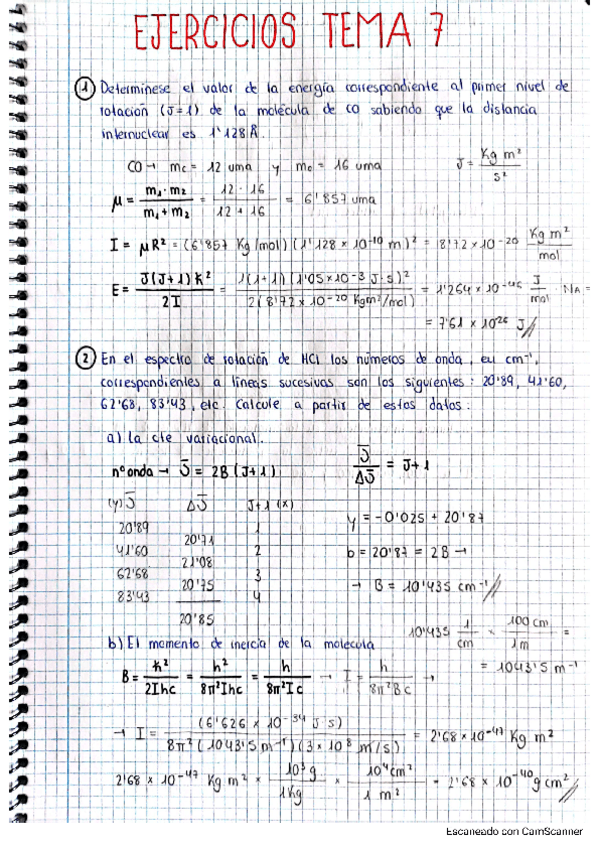 EJERCICIOS TEMA 7
① Determínese el valor de la energía correspondiente al primer nivel de
rotación (J=1) de la molécula de CO sabiendo que la distancia
internuclear es 1'128 Å.
CO → mc = 12 uma y mo = 16 uma
J = Kg m² / s²
μ = m₁·m₂ / m₁+m₂ = 12·16 / 12+16 = 6'857 uma
I = μR² = (6'857 Kg/mol)(1'128 × 10⁻¹⁰ m)² = 8'72 × 10⁻²⁰ Kg m² / mol
E = J(J+1)ħ² / 2I = 1(1+1)(1'05×10⁻³ J·s)² / 2(8'72 × 10⁻²⁰ Kgm²/mol) = 1'264 × 10⁻⁴⁶ J / mol · NA =
= 7'61 × 10²⁶ J//
② En el espectro de rotación de HCl los números de onda, en cm⁻¹,
correspondientes a líneas sucesivas son los siguientes: 20'89, 41'60,
62'68, 83'43, etc. Calcule a partir de estos datos:
a) la cte variacional.
nº onda → ν̄ = 2B(J+1)
ν̄ / Δν̄ = J+1
(y) ν̄ Δν̄ J+1 (x)
20'89 1
20'71
41'60 2
21'08
62'68 3
20'75
83'43 4
20'85
y = -0'025 + 20'87
b = 20'87 = 2B →
→ B = 10'435 cm⁻¹//
10'435 1/cm × 100 cm / 1 m =
= 1043'5 m⁻¹
b) El momento de inercia de la molécula
B = ħ² / 2Ihc = h² / 8π²Ihc = h / 8π²Ic → I = h / 8π²Bc →
→ I = (6'626 × 10⁻³⁴ J s) / 8π² (1043'5 m⁻¹)(3 × 10⁸ m/s) = 2'68 × 10⁻⁴⁷ Kg m²
2'68 × 10⁻⁴⁷ Kg m² × 10³ g / 1Kg × 10⁴ cm² / 1 m² = 2'68 × 10⁻⁴⁰ g cm²//
Escaneado con CamScanner